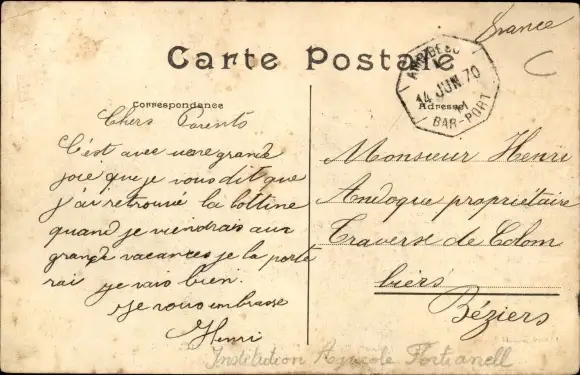 France
Carte Postale
AMB. DESC
14 JUN. 70
BAR-PORT
Correspondance
Adresse
Chers Parents
C'est avec une grande
joie que je vous dit que
j'ai retrouvé la bottine
quand je viendrais aux
grande vacances je la porte
rai je vais bien.
Je vous embrasse
Henri
Monsieur Henri
Andoque propriétaire
Traverse de Colom
biers
Béziers
Institution Agricole Fortianell